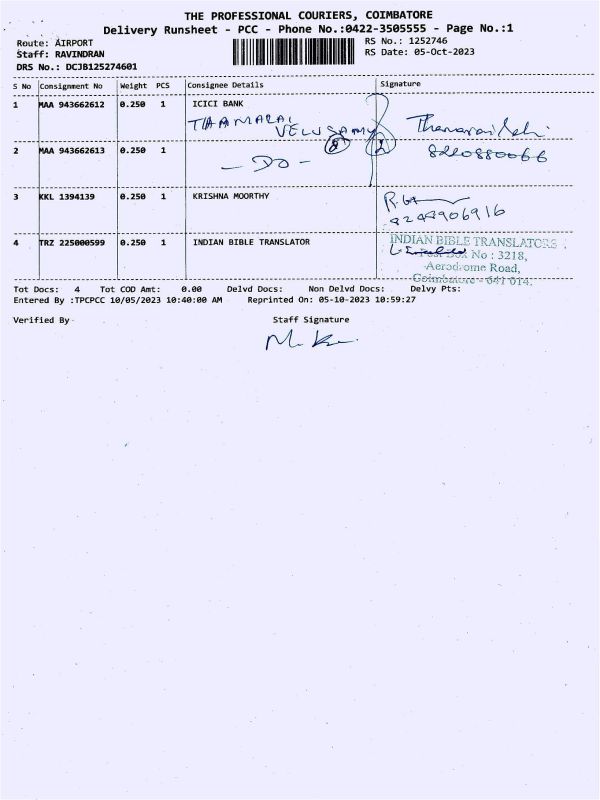 THE PROFESSIONAL COURIERS, COIMBATORE
Delivery Runsheet - PCC - Phone No.:0422-3505555 - Page No.:1
Route: AIRPORT RS No.: 1252746
Staff: RAVINDRAN RS Date: 05-Oct-2023
DRS No.: DCJB125274601
S No Consignment No Weight PCS Consignee Details Signature
1 MAA 943662612 0.250 1 ICICI BANK
THAAMARAI
VELUSAMY
8 2
2 MAA 943662613 0.250 1
- DO -
8220880066
3 KKL 1394139 0.250 1 KRISHNA MOORTHY
4 TRZ 225000599 0.250 1 INDIAN BIBLE TRANSLATOR INDIAN BIBLE TRANSLATORS
Post Box No : 3218,
Aerodrome Road,
Coimbatore - 641 014.
Tot Docs: 4 Tot COD Amt: 0.00 Delvd Docs: Non Delvd Docs: Delvy Pts:
Entered By :TPCPCC 10/05/2023 10:40:00 AM Reprinted On: 05-10-2023 10:59:27
Verified By Staff Signature